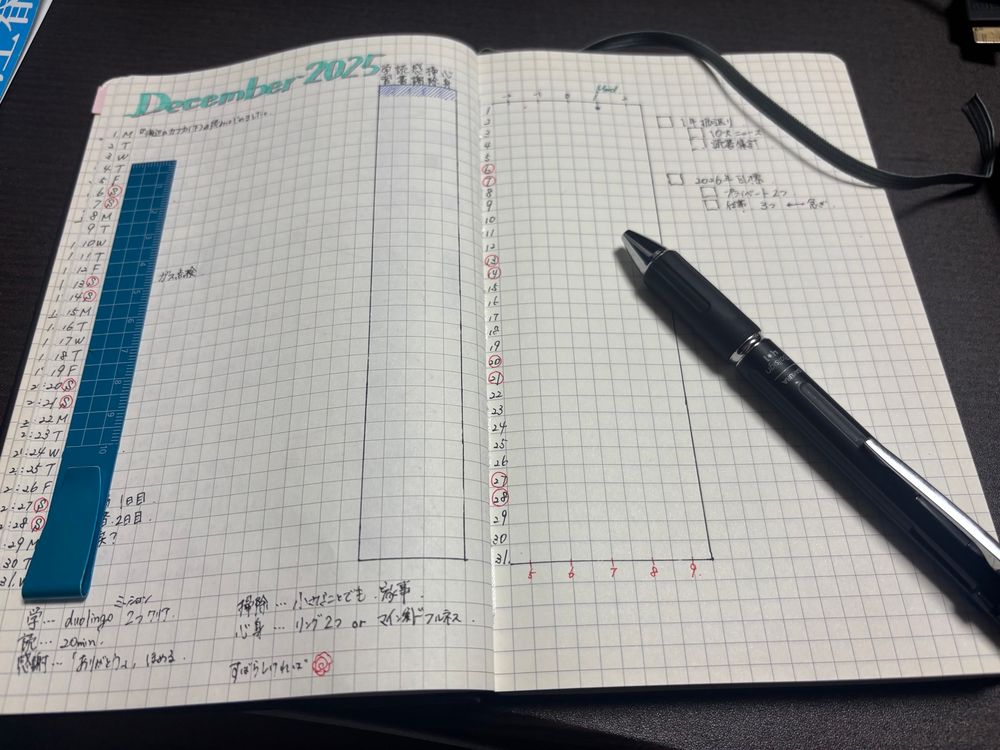 December 2025
学 読 感 掃 心
習 書 謝 除 身
1 M
2 T
3 W
4 T
5 F
6 S
7 S
8 M
9 T
10 W
11 T
12 F ガス点検
13 S
14 S
15 M
16 T
17 W
18 T
19 F
20 S
21 S
22 M
23 T
24 W
25 T
26 F
27 S 1日目
28 S 2日目.
29 M ?
30 T
31 W
学… duolingo ミッション 2つクリア
読… 20min.
感謝…「ありがとう」, ほめる.
掃除… 小さなことでも. 家事.
心身… リング2つ or マインドフルネス.
すばらしければ
Mood
1
2
3
4
5
6
7
8
9
10
11
12
13
14
15
16
17
18
19
20
21
22
23
24
25
26
27
28
29
30
31.
5 6 7 8 9
1年振返り
10大ニュース
読書集計
2026年目標
プライベート 2つ
仕事 3つ ← 急ぎ.